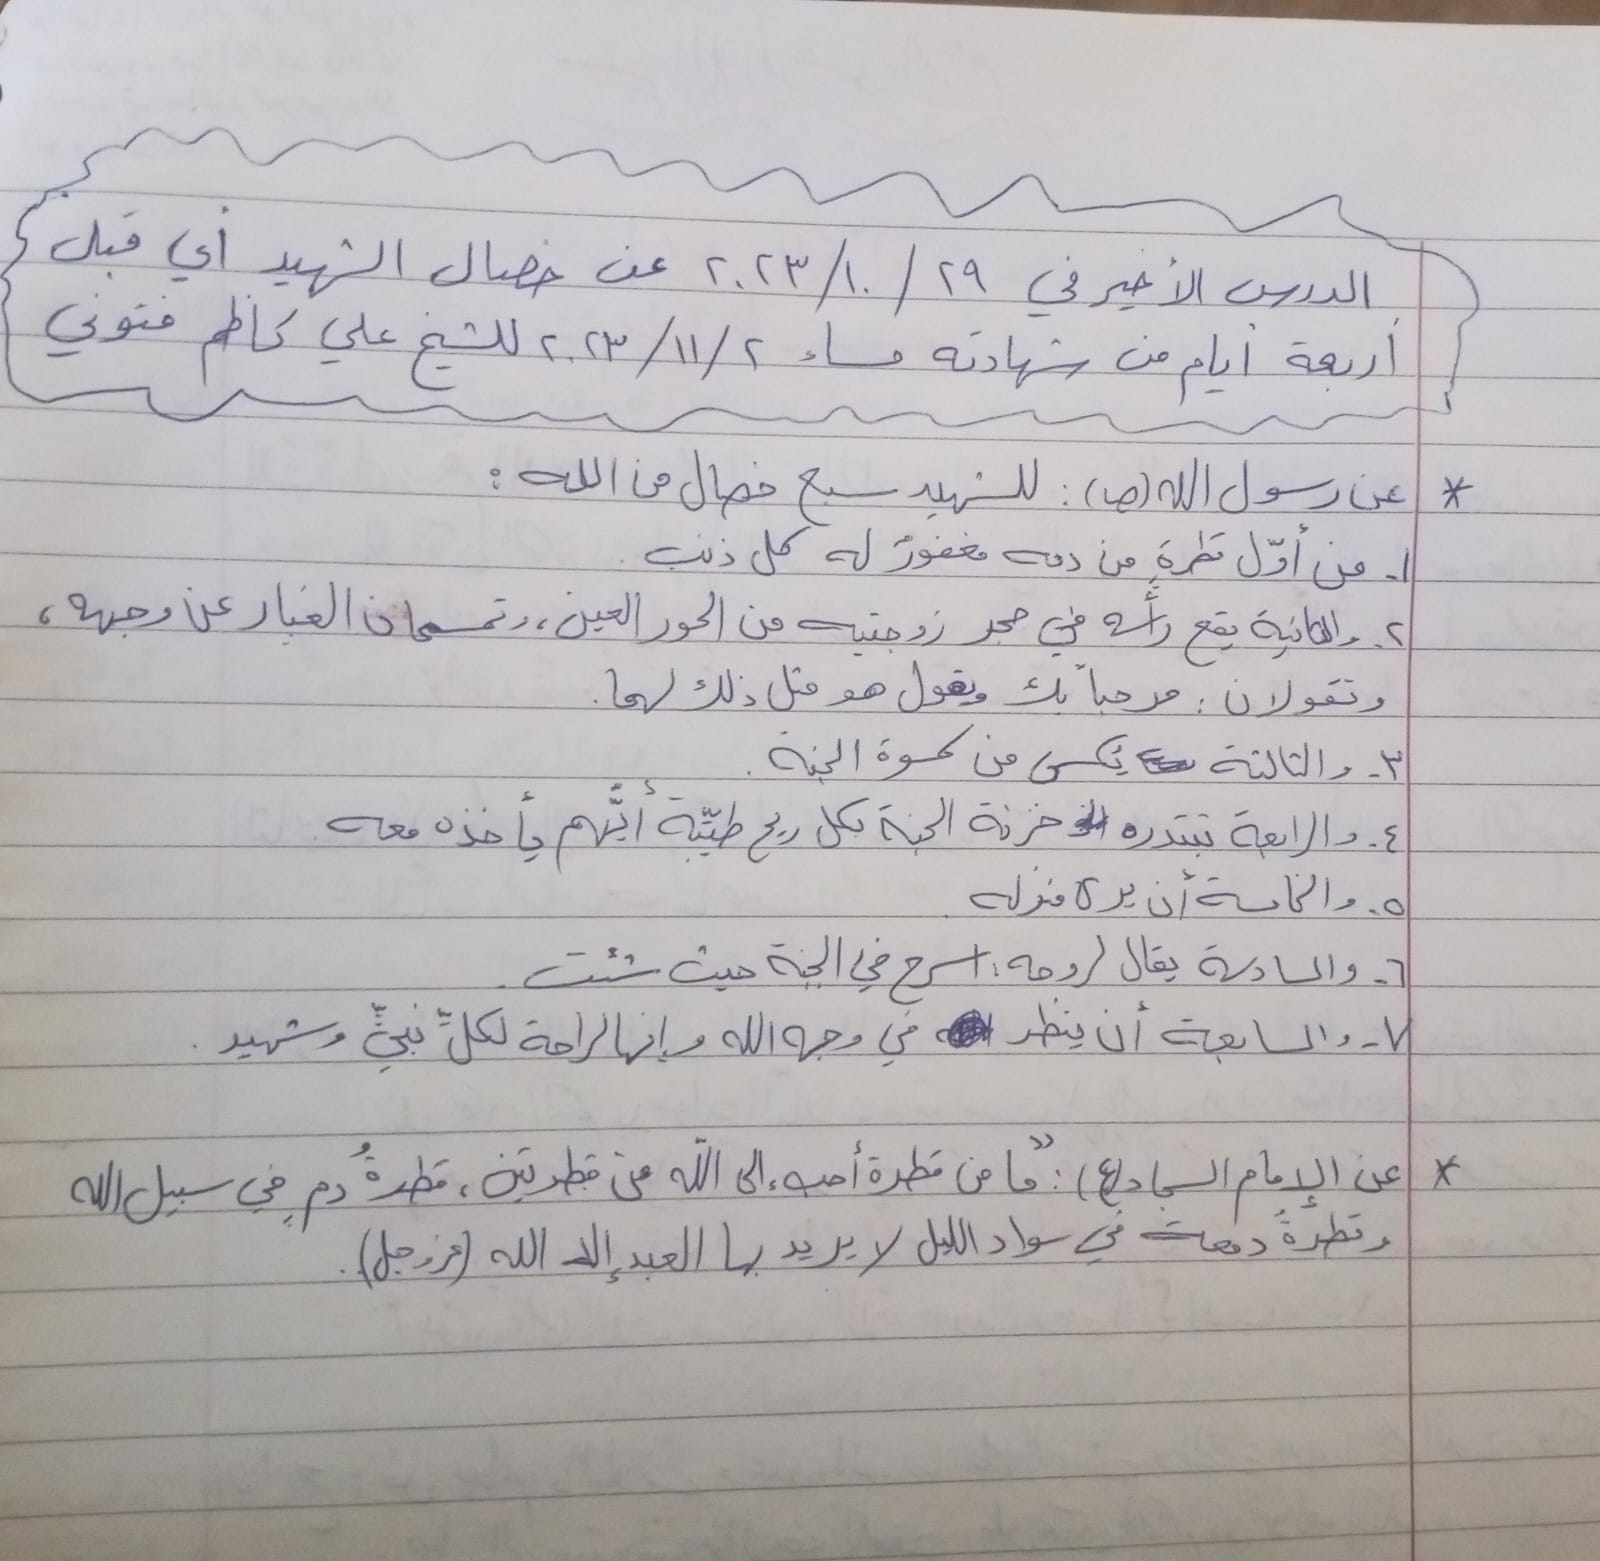 الدرس الأخير في ٢٩/١٠/٢٠٢٣ عن خصال الشهيد أي قبل
أربعة أيام من شهادته مساء ٢/١١/٢٠٢٣ للشيخ علي كاظم فتوني
* عن رسول الله (ص): للشهيد سبع خصال من الله:
١- من أوّل قطرةٍ من دمه مغفورٌ له كل ذنب.
٢- والثانية يقع رأسه في حجر زوجتيه من الحور العين، وتمسحان الغبار عن وجهه،
وتقولان: مرحباً بك ويقول هو مثل ذلك لهما.
٣- والثالثة يُكسى من كسوة الجنة.
٤- والرابعة تبتدره خزنة الجنة بكل ريح طيّبة أيُّهم يأخذه معه.
٥- والخامسة أن يرى منزله.
٦- والسادسة يقال لروحه: اسرح في الجنة حيث شئت.
٧- والسابعة أن ينظر في وجه الله وإنها لراحة لكلِّ نبيٍّ وشهيد.
* عن الإمام السجاد (ع): "ما من قطرة أحب إلى الله من قطرتين، قطرةُ دمٍ في سبيل الله
وقطرةُ دمعت في سواد الليل لا يريد بها العبد إلا الله (عز وجل).